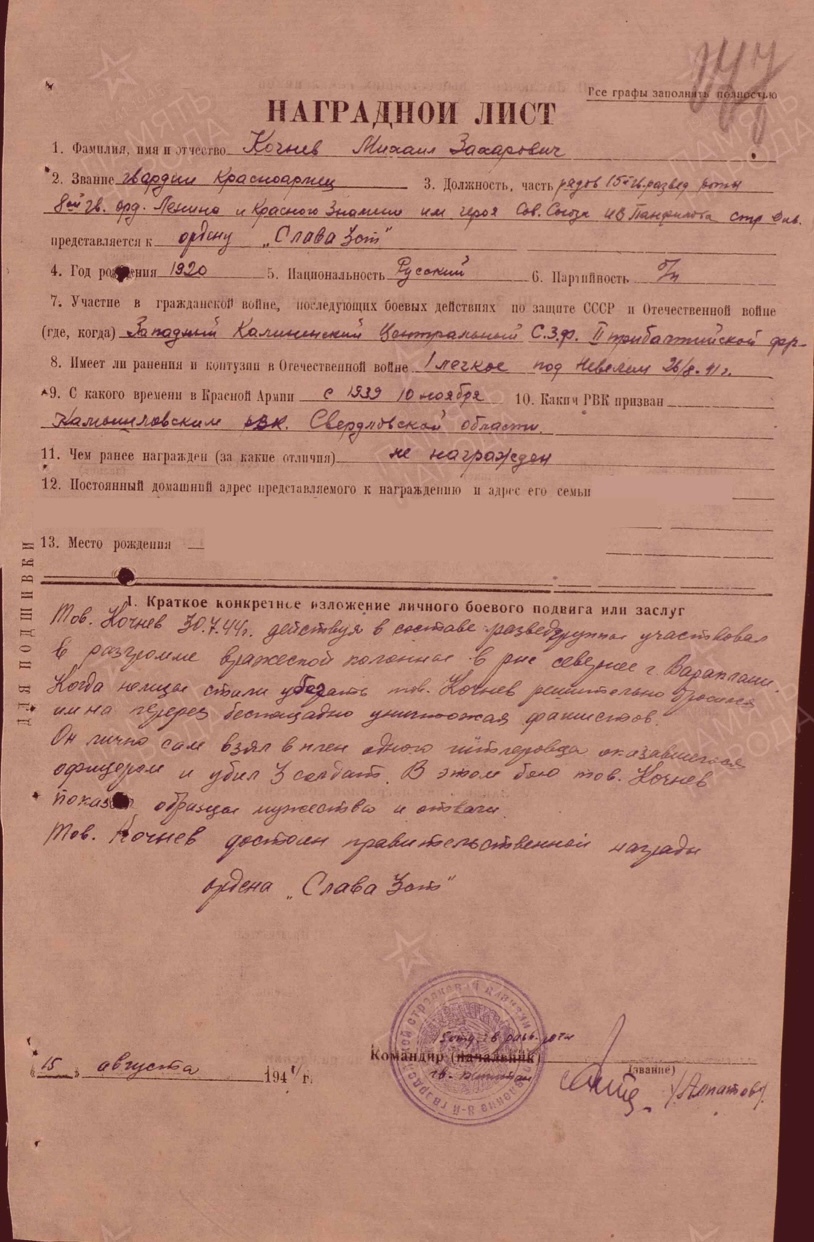 Все графы заполнять полностью
НАГРАДНОЙ ЛИСТ
1. Фамилия, имя и отчество Кочнев Михаил Захарович
2. Звание гвардии Красноармец 3. Должность, часть рядов 15 гв. развед роты
8ой гв. орд. Ленина и Красного Знамени им героя Сов. Союза ИВ Панфилова стр див.
представляется к ордену „Слава 3 ст"
4. Год рождения 1920 5. Национальность Русский 6. Партийность б/п
7. Участие в гражданской войне, последующих боевых действиях по защите СССР и Отечественной войне
(где, когда) Западный Калининский Центральный С.З.ф. II прибалтийской фр-
8. Имеет ли ранения и контузии в Отечественной войне 1 легкое под Невелем 26/8-41г.
9. С какого времени в Красной Армии с 1939 10 ноября 10. Каким РВК призван
Камышловским РВК. Свердловской области.
11. Чем ранее награжден (за какие отличия) не награжден
12. Постоянный домашний адрес представляемого к награждению и адрес его семьи
13. Место рождения
ДЛЯ ПОДШИВКИ
1. Краткое конкретное изложение личного боевого подвига или заслуг
Тов. Кочнев 30.7.44г. действуя в составе разведгруппы участвовал
в разгроме вражеской колонны в рне севернее г. Варакланы.
Когда немцы стали убегать тов. Кочнев решительно бросился
им на перерез беспощадно уничтожая фашистов.
Он лично сам взял в плен одного гитлеровца оказавшегося
офицером и убил 3 солдат. В этом бою тов. Кочнев
показал образцы мужества и отваги.
Тов. Кочнев достоин правительственной награды
ордена „Слава 3 ст"
Командир (начальник)
гв. капитан
(звание)
/Алпатов/
„15" августа 1944г.
ПАМЯТЬ НАРОДА